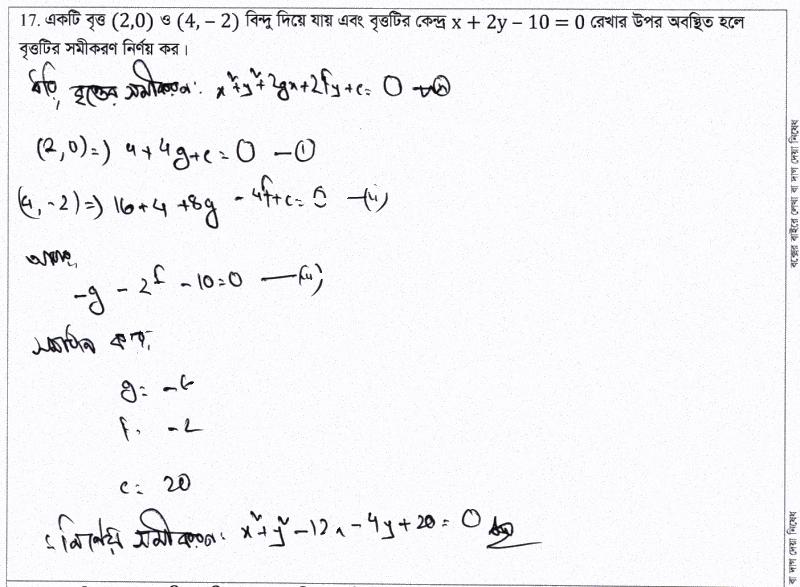 17. একটি বৃত্ত (2,0) ও (4, − 2) বিন্দু দিয়ে যায় এবং বৃত্তটির কেন্দ্র x + 2y − 10 = 0 রেখার উপর অবস্থিত হলে
বৃত্তটির সমীকরণ নির্ণয় কর।
ধরি, বৃত্তের সমীকরণ: x²+y²+2gx+2fy+c = 0
(2,0)=) 4+4g+c=0 —(i)
(4,-2)=) 16+4+8g -4f+c=0 —(ii)
-g -2f -10=0 —(iii)
সমাধান করে,
g= -6
f= -2
c= 20
∴ নির্ণেয় সমীকরণ: x²+y²-12x-4y+20=0
বক্সের বাইরে লেখা বা দাগ দেয়া নিষেধ
বা দাগ দেয়া নিষেধ